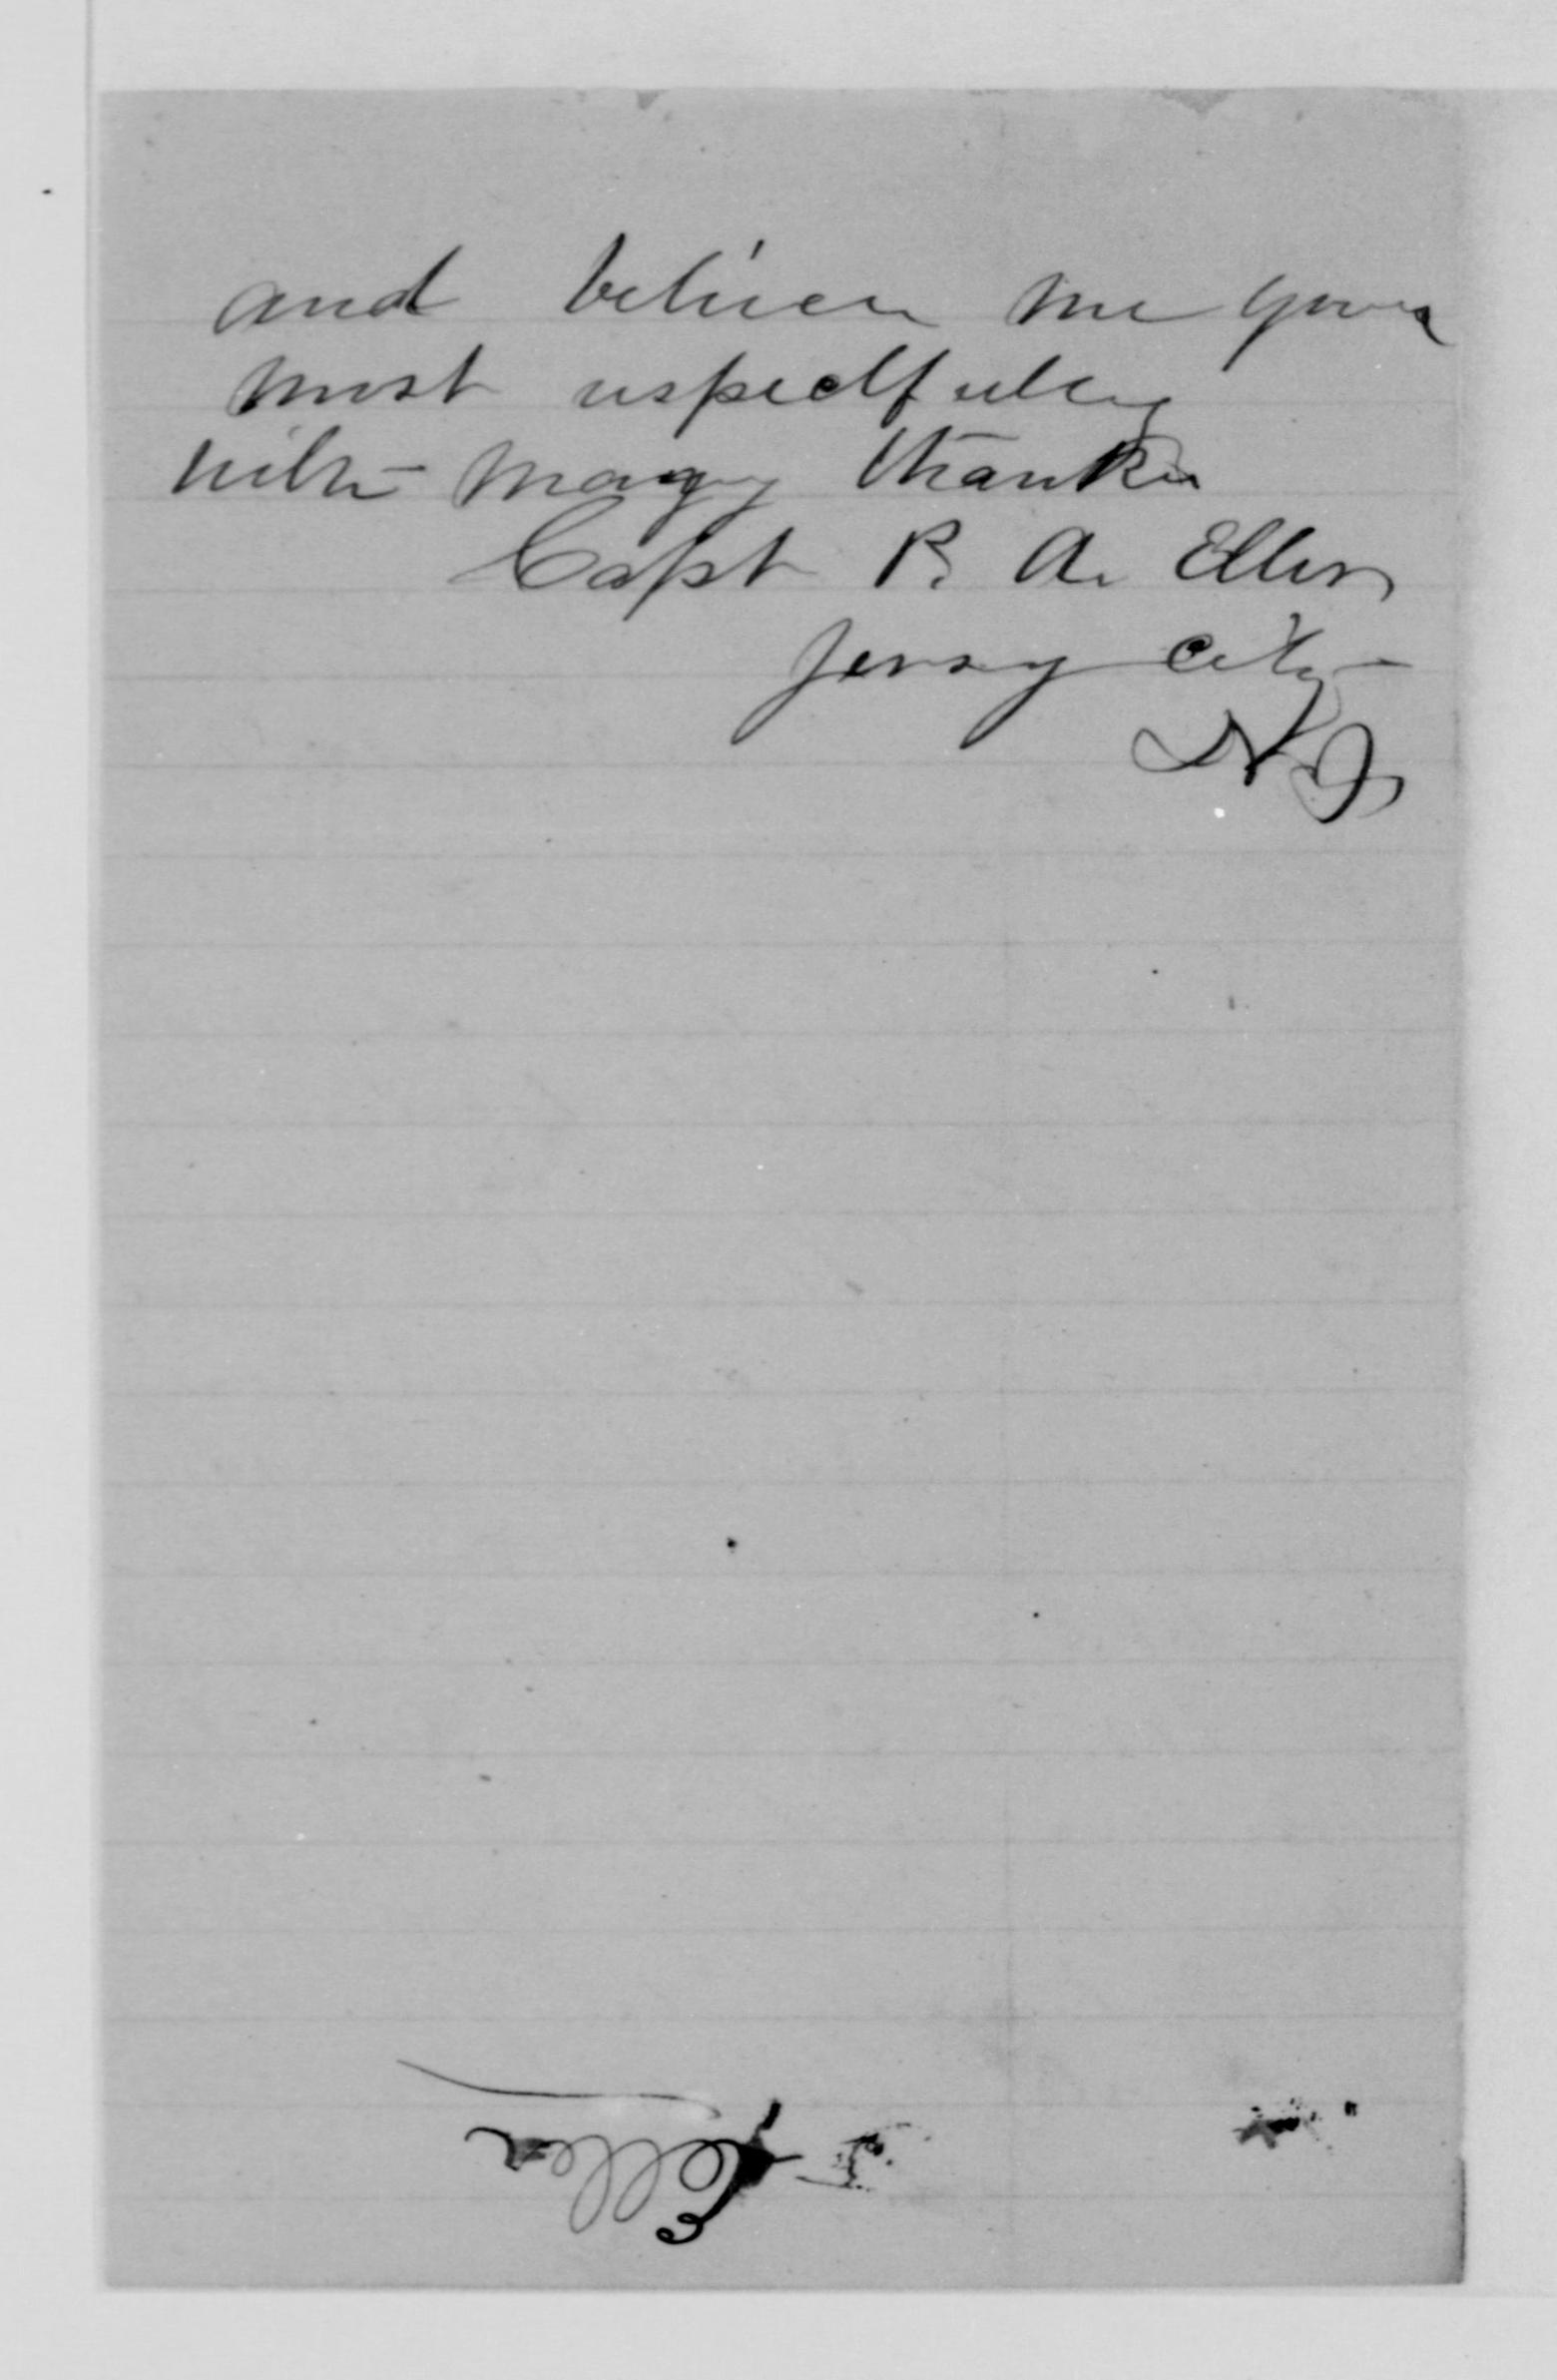 and believe me yours
most respectfully
with many thanks
Capt R. A. Ellis
Jersey City
NJ